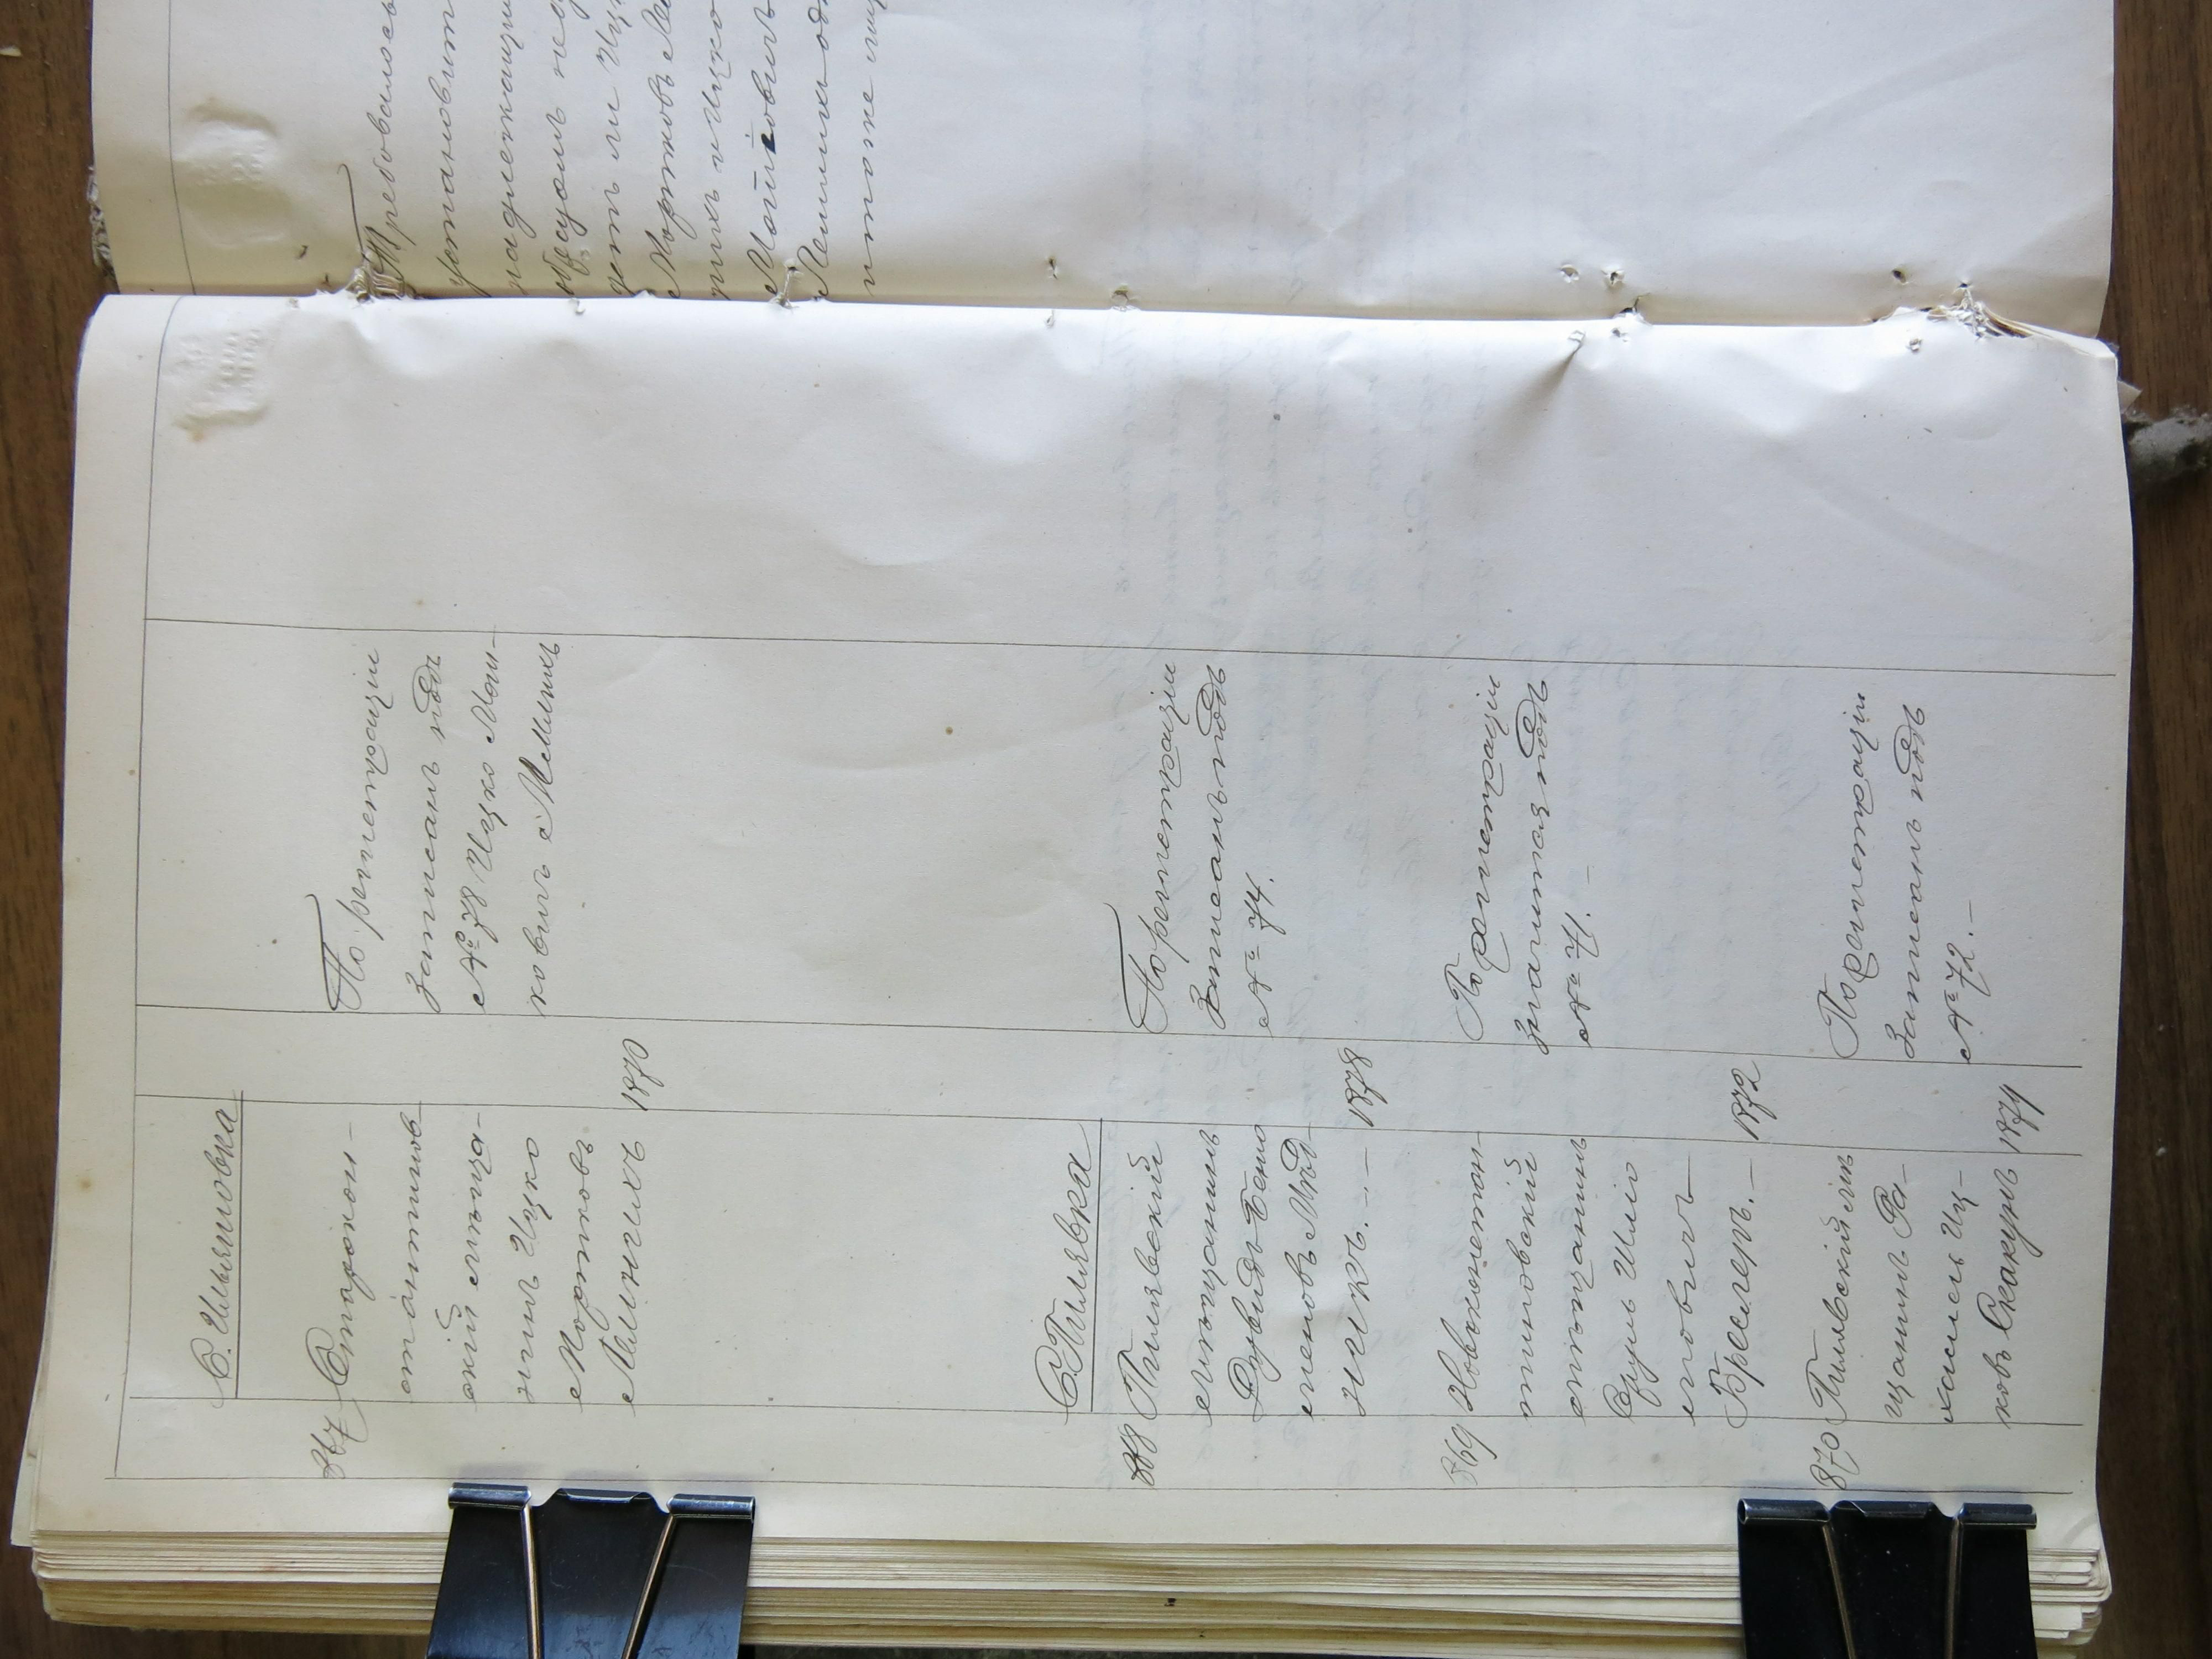 С. Ильяшовка
867 Старокон-
стантинов-
скій мѣща-
нинъ Ицко
Мортковъ
Мѣлнгихъ 1870
По регистраціи
Записанъ подъ
№ 78 Ицко Мош-
ковичъ Мельникъ
С. Пилявка
868 Пилявскій
мѣщанинъ
Дувидъ-Бенъ
1878
По регистраціи
Записанъ подъ
№ 74.
869 Новоконстан-
тиновскій
мѣщанинъ
Сруль Шліо
мовичъ
Бреслеръ. — 1872
По регистраціи
значится подъ
№ 71. —
870 Пилявскій мѣ
щанинъ Ра-
хмель Иц-
ковъ Скакунъ 1874
По регистраціи
Записанъ подъ
№ 72. —
Требовалось
установит
надлежащи
Мортковъ
Мошковичъ